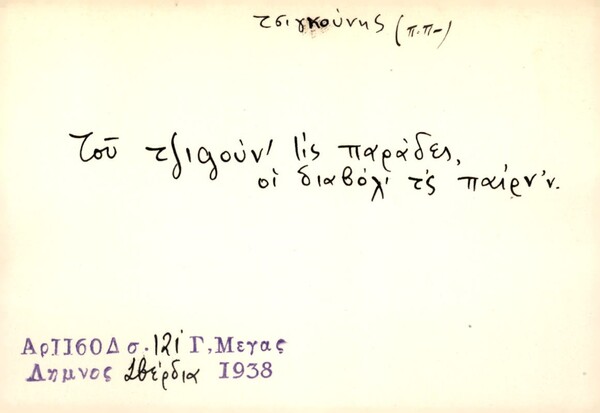 τσιγκούνης (π.π-)
Τοῦ τζιγούν' τὶς παράδες,
οἱ διαβόλ' τ'ς παίρν'ν.
Αρ1160Δ σ. 121 Γ, Μεγας
Λημνος Σβέρδια 1938